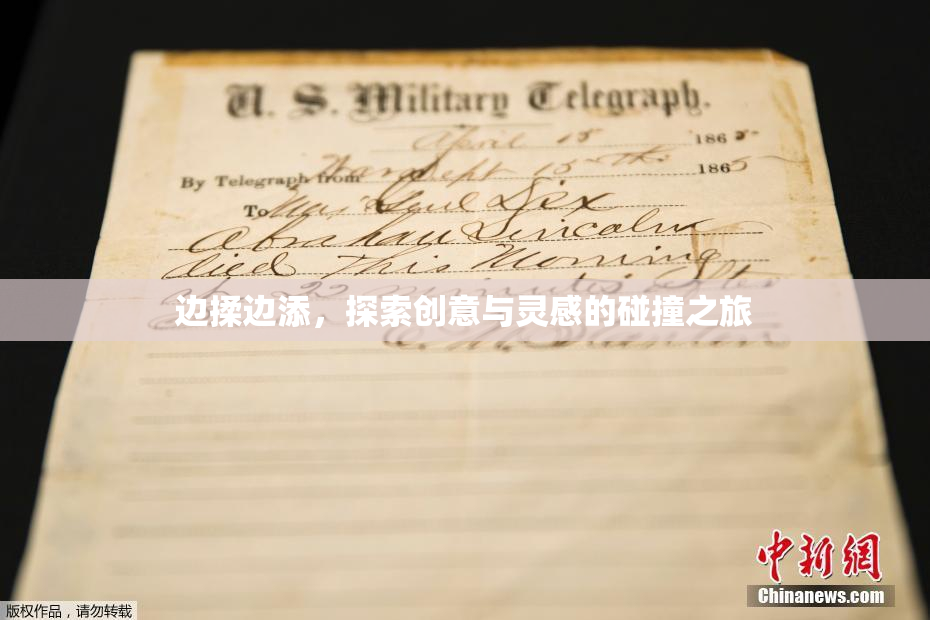 U. S. Military Telegraph.
April 15 1865
By Telegraph from War Dept 15th 1865
To Maj Genl Dix
Abraham Lincoln
died This Morning
at 22 minutes after
边揉边添，探索创意与灵感的碰撞之旅
E. M. Stanton
中新网
Chinanews.com
版权作品，请勿转载